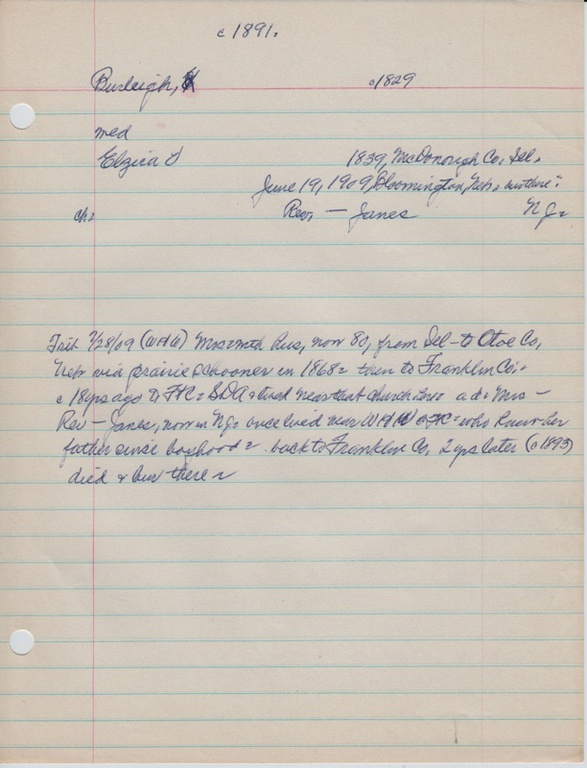 c 1891.
Burleigh, c1829
med
Elzira 1839, McDonough Co, Ill.
June 19, 1909, Bloomington, Nebr
ch: Rev. — Janes N J.
Trib 7/28/09 (WHW) Mrs now 80, from Ill - to Otoe Co,
Nebr via prairie schooner in 1868 = then to Franklin Co.
c 18 yrs ago to FtC = SDA & lived near that church a d. Mrs —
Rev — Janes, now in N J = once lived near WHW = who knew her
father since boyhood = back to Franklin Co, 2 yrs later (c 1893)
died & bur there